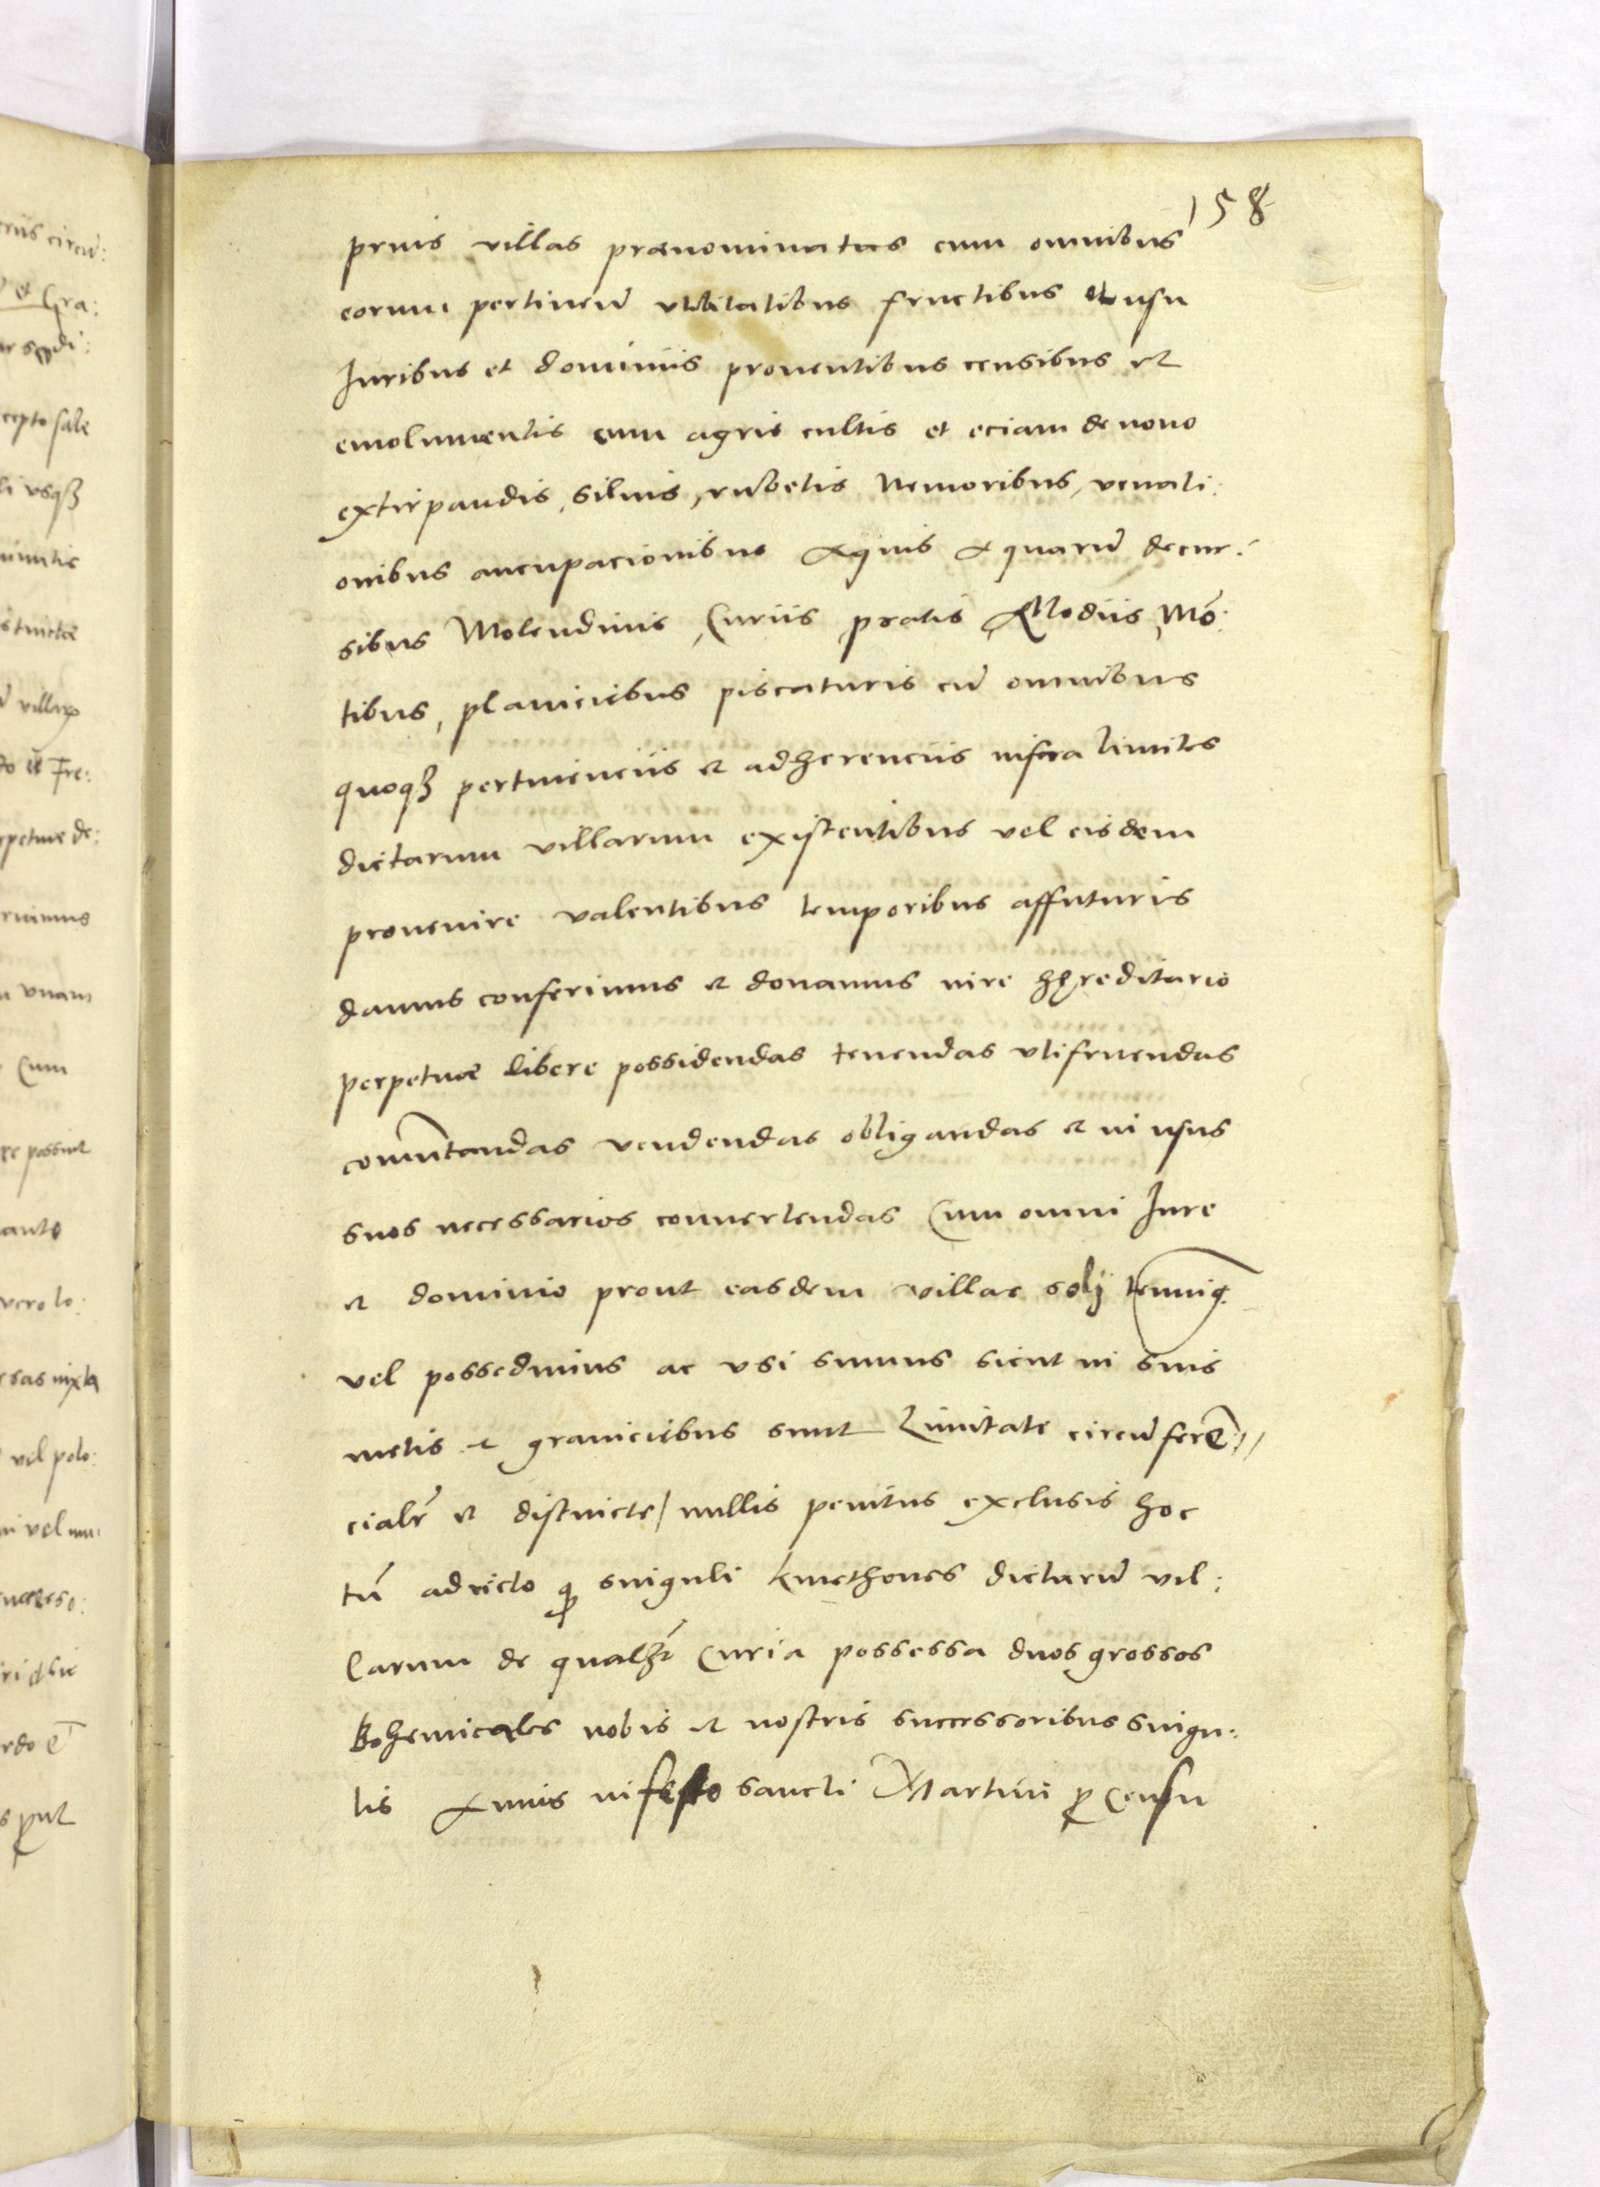 158
pruis villas prænominatas cum omnibus
eorum pertinen̄ vtilitatibus fructibus et usu
Iuribus et dominiis prouentibus censibus et
emolumentis cum agris cultis et eciam de nouo
extirpandis, siluis, rubetis Nemoribus, venati:
onibus aucupacionibus Aquis Aquarū decur:
sibus Molendinis, Curiis pratis, Allodiis, Mō:
tibus, planiciibus piscaturis cū omnibus
quoqȝ pertinenciis et adherenciis infra limites
dictarum villarum existentibus vel eisdem
prouenire valentibus temporibus affuturis
damus conferimus et donamus iure hęreditario
perpetuæ libere possidendas tenendas vtifruendas
com̄utandas vendendas obligandas et in usus
suos necessarios conuertendas Cum omni Iure
et dominio prout easdem villas solj tenuimꝰ
vel possedimus ac vsi sumus sicut in suis
metis et graniciibus sunt Limitate circūferē:
cialr̄ et distincte / nullis penitus exclusis hoc
tn̄ adiecto ꝙ singuli kmethones dictarū vil:
larum de qualȝt Curia possessa duos grossos
Bohemicales nobis et nostris successoribus singu:
lis Annis in festo sancti Martini ꝓ Censu
riis circū:
et Gra:
cepto sale
li vsqȝ
stinctæ
Fre:
rpetuæ de:
vnam
Cum
re possint
vero lo:
sas iuxta
vel polo:
ni vel mu:
successo: